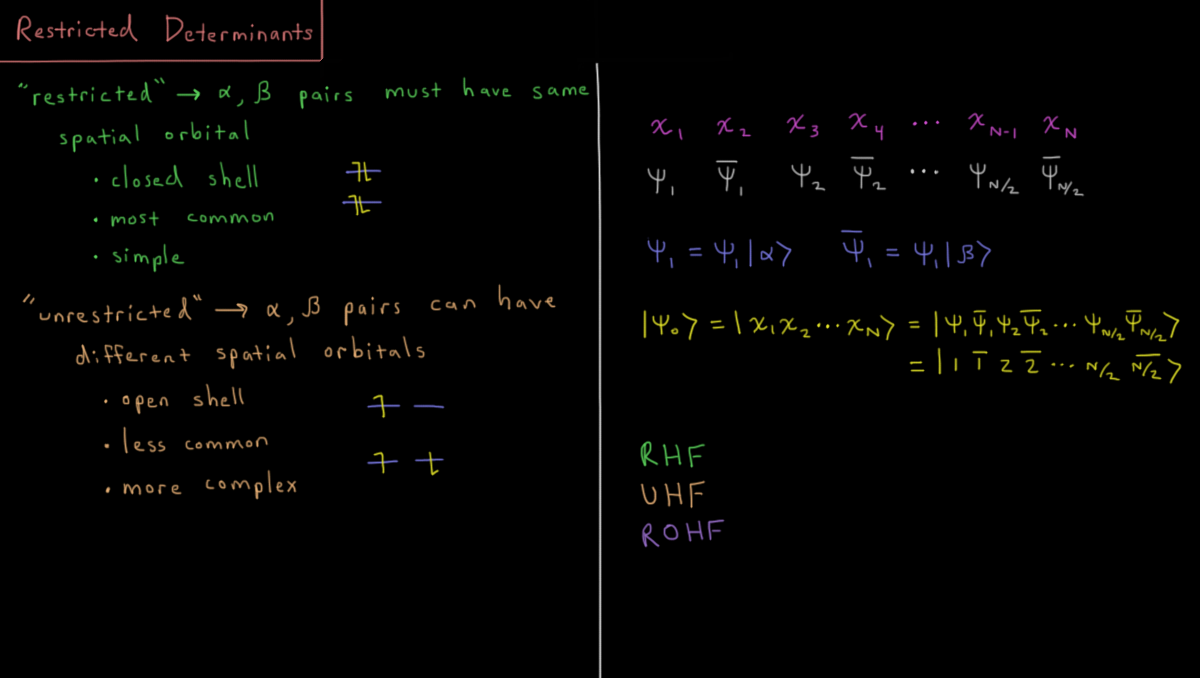 Restricted Determinants
"restricted" → α, β pairs must have same
spatial orbital
• closed shell
• most common
• simple
"unrestricted" → α, β pairs can have
different spatial orbitals
• open shell
• less common
• more complex
χ₁ χ₂ χ₃ χ₄ ⋯ χ_N-1 χ_N
ψ₁ ψ̄₁ ψ₂ ψ̄₂ ⋯ ψ_N/2 ψ̄_N/2
ψ₁ = ψ₁|α⟩ ψ̄₁ = ψ₁|β⟩
|Ψ₀⟩ = |χ₁χ₂⋯χ_N⟩ = |ψ₁ψ̄₁ψ₂ψ̄₂⋯ψ_N/2ψ̄_N/2⟩
= |1 1̄ 2 2̄ ⋯ N/2 N̄/̄2̄⟩
RHF
UHF
ROHF